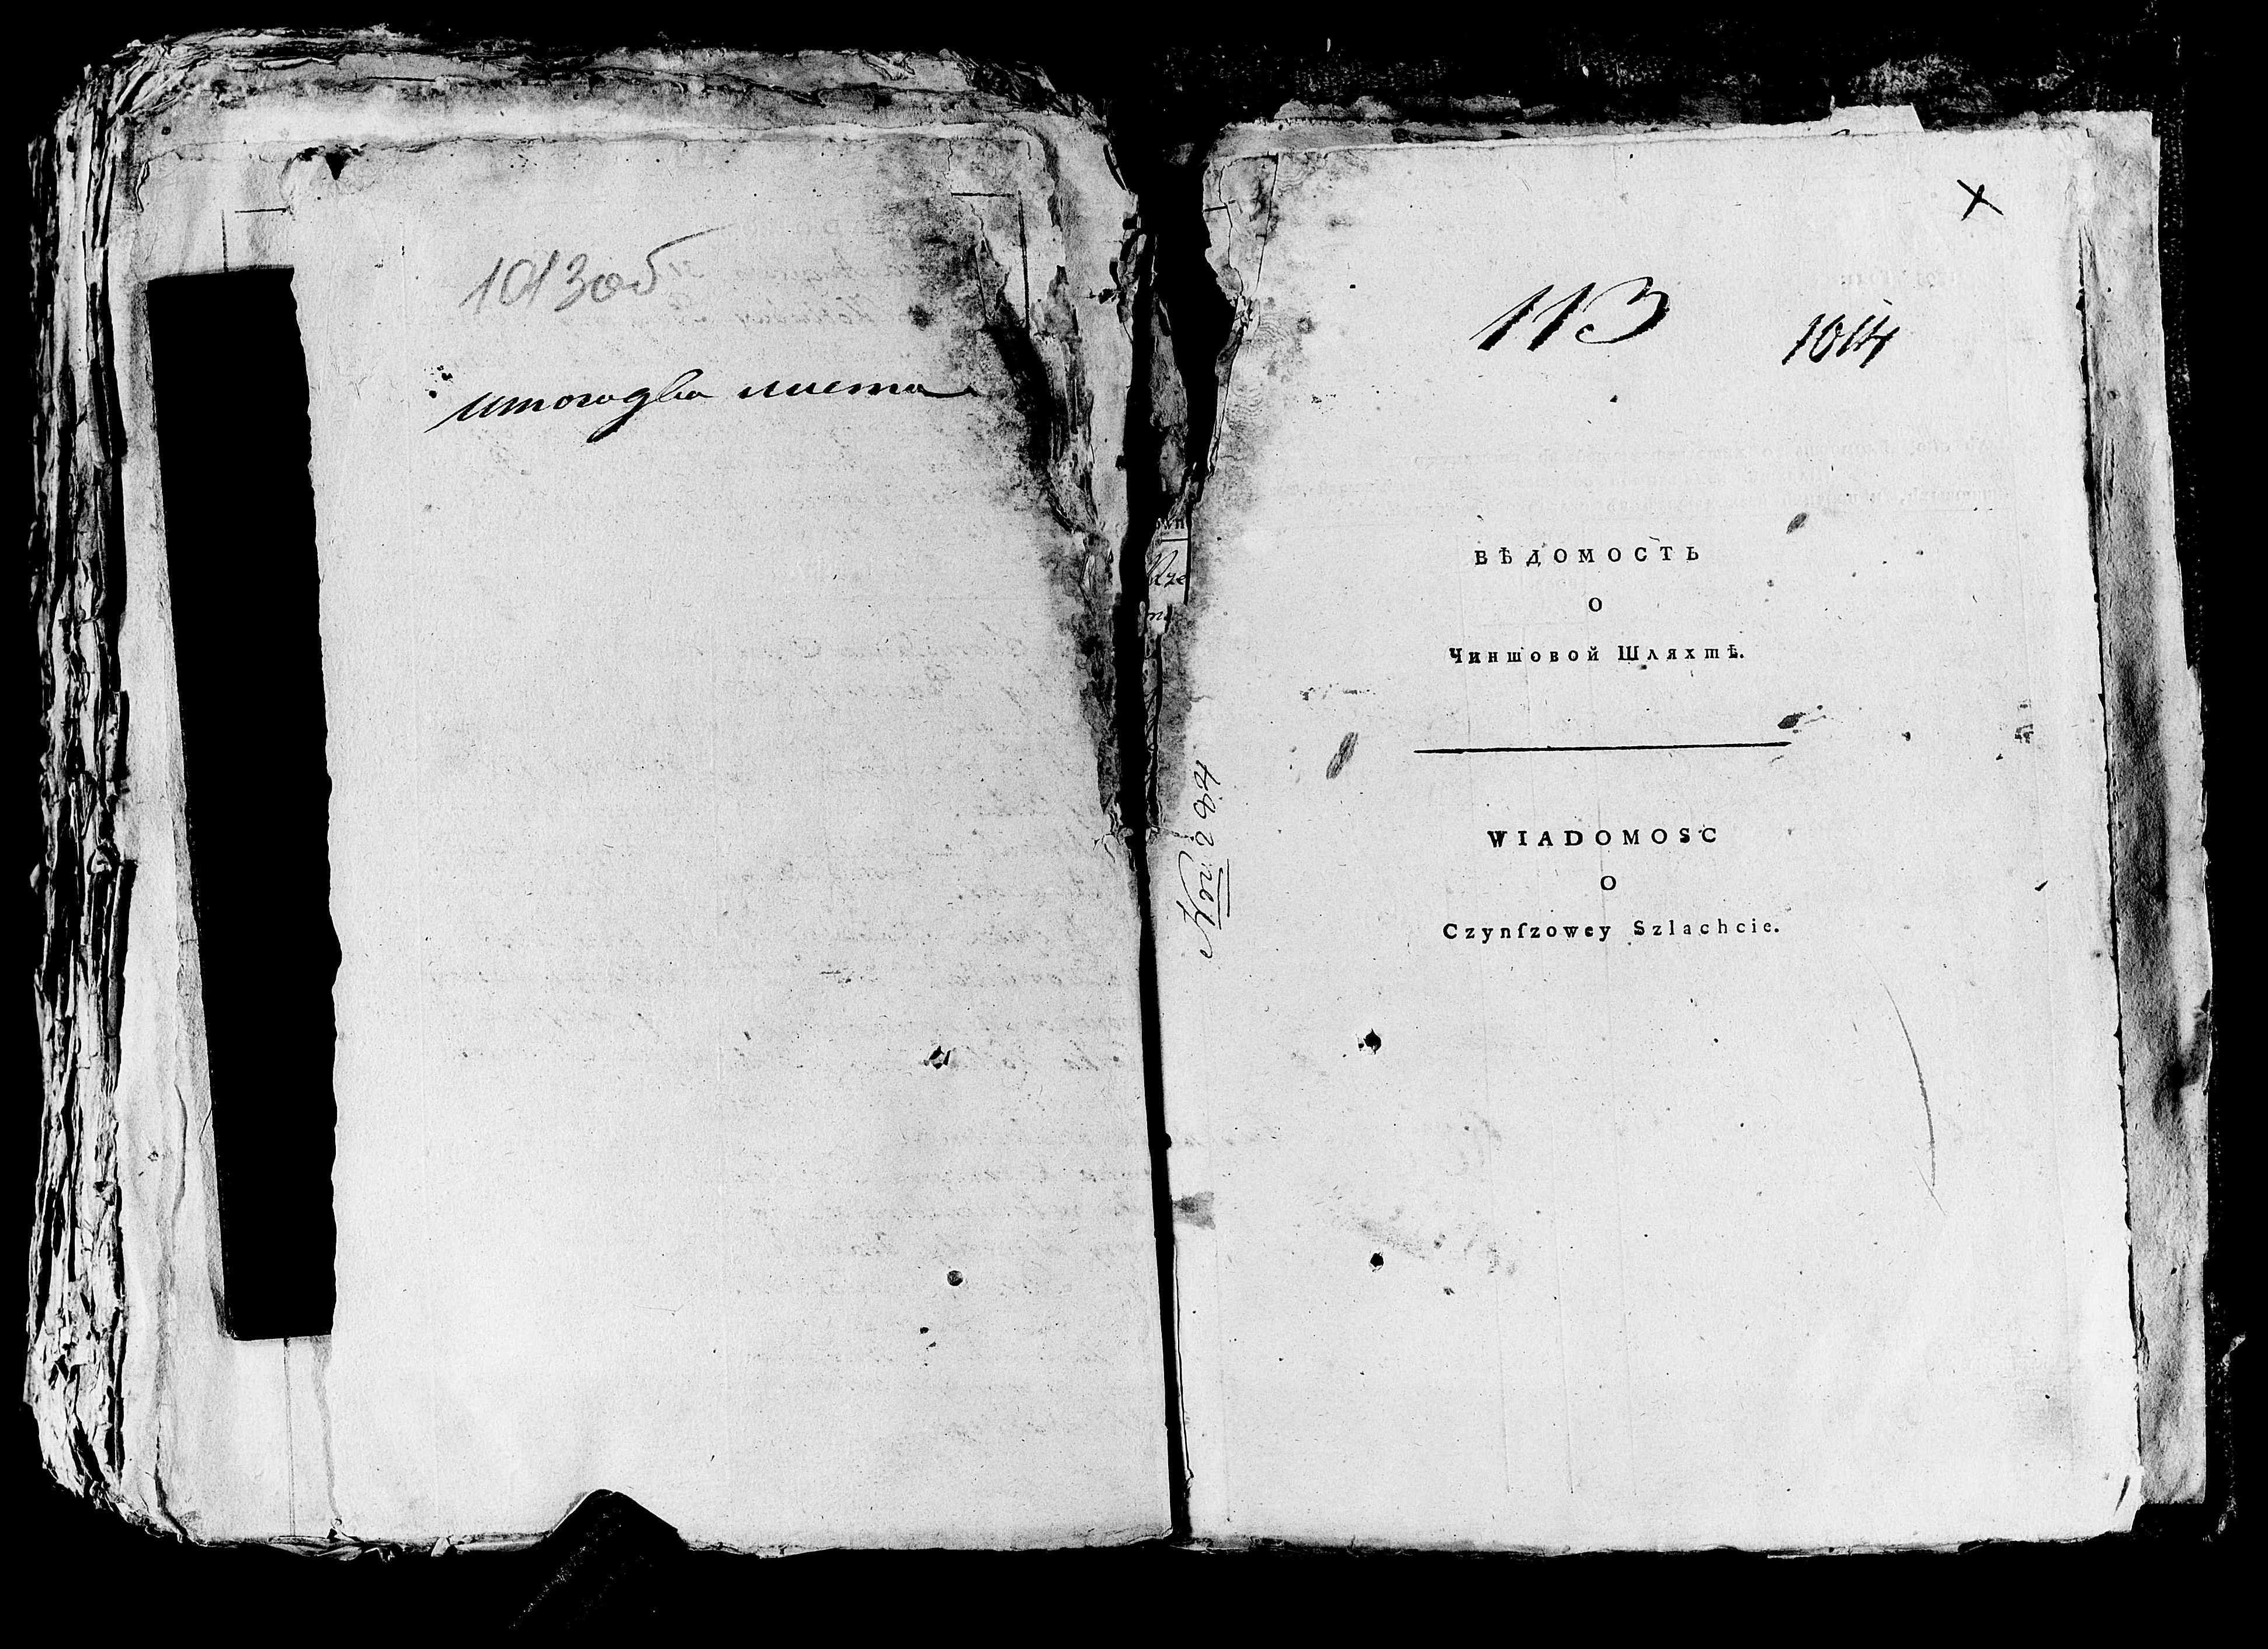 1013об
итого два листа
X
113
1014
ВѢДОМОСТЬ
О
Чиншовой Шляхтѣ.
WIADOMOSC
O
Czynſzowey Szlachcie.
Nro: 284